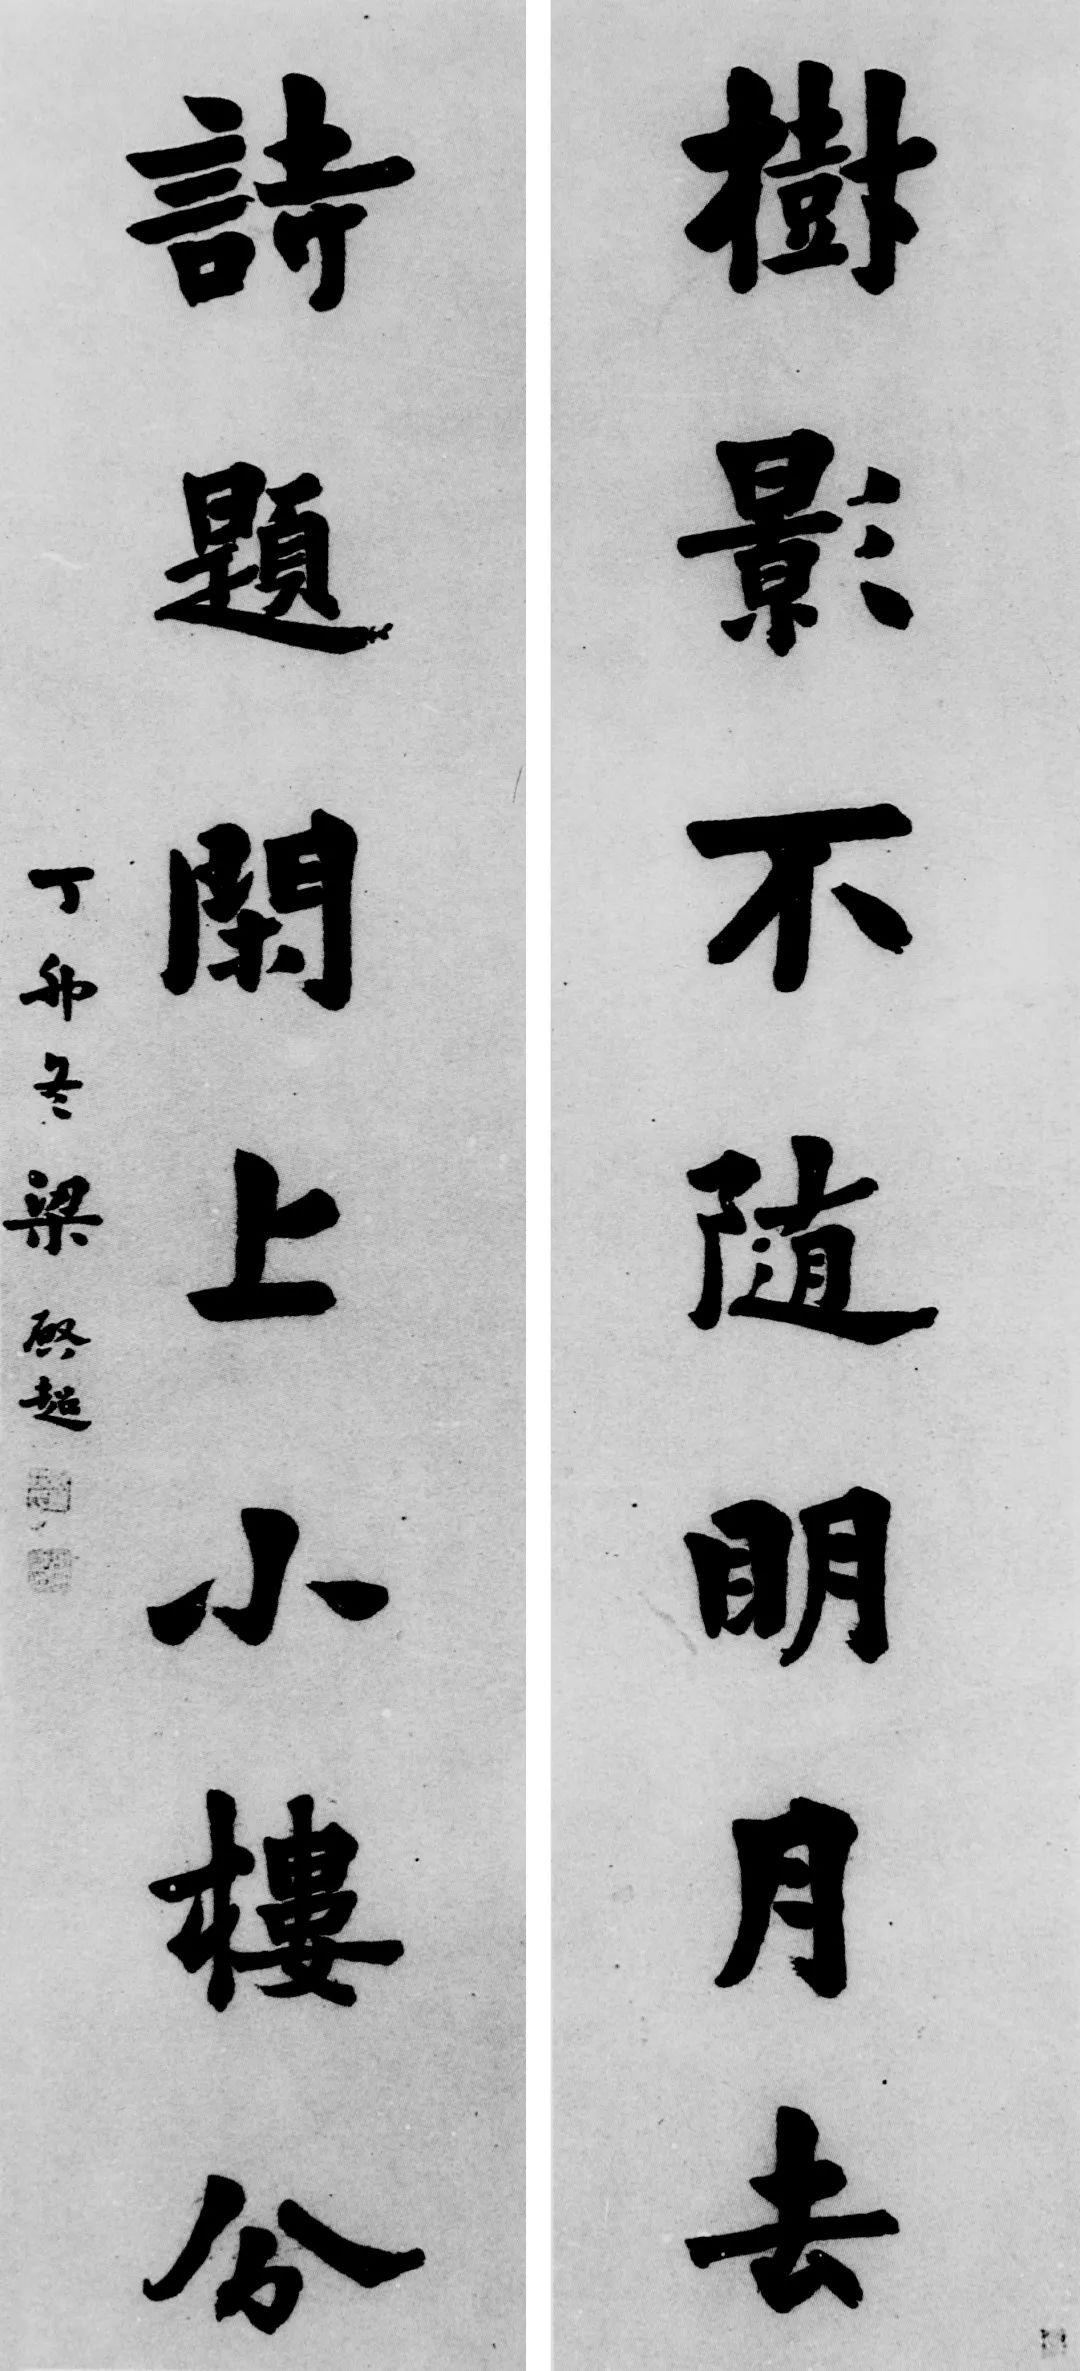 樹影不隨明月去
詩題閑上小樓分
丁卯冬 梁啟超